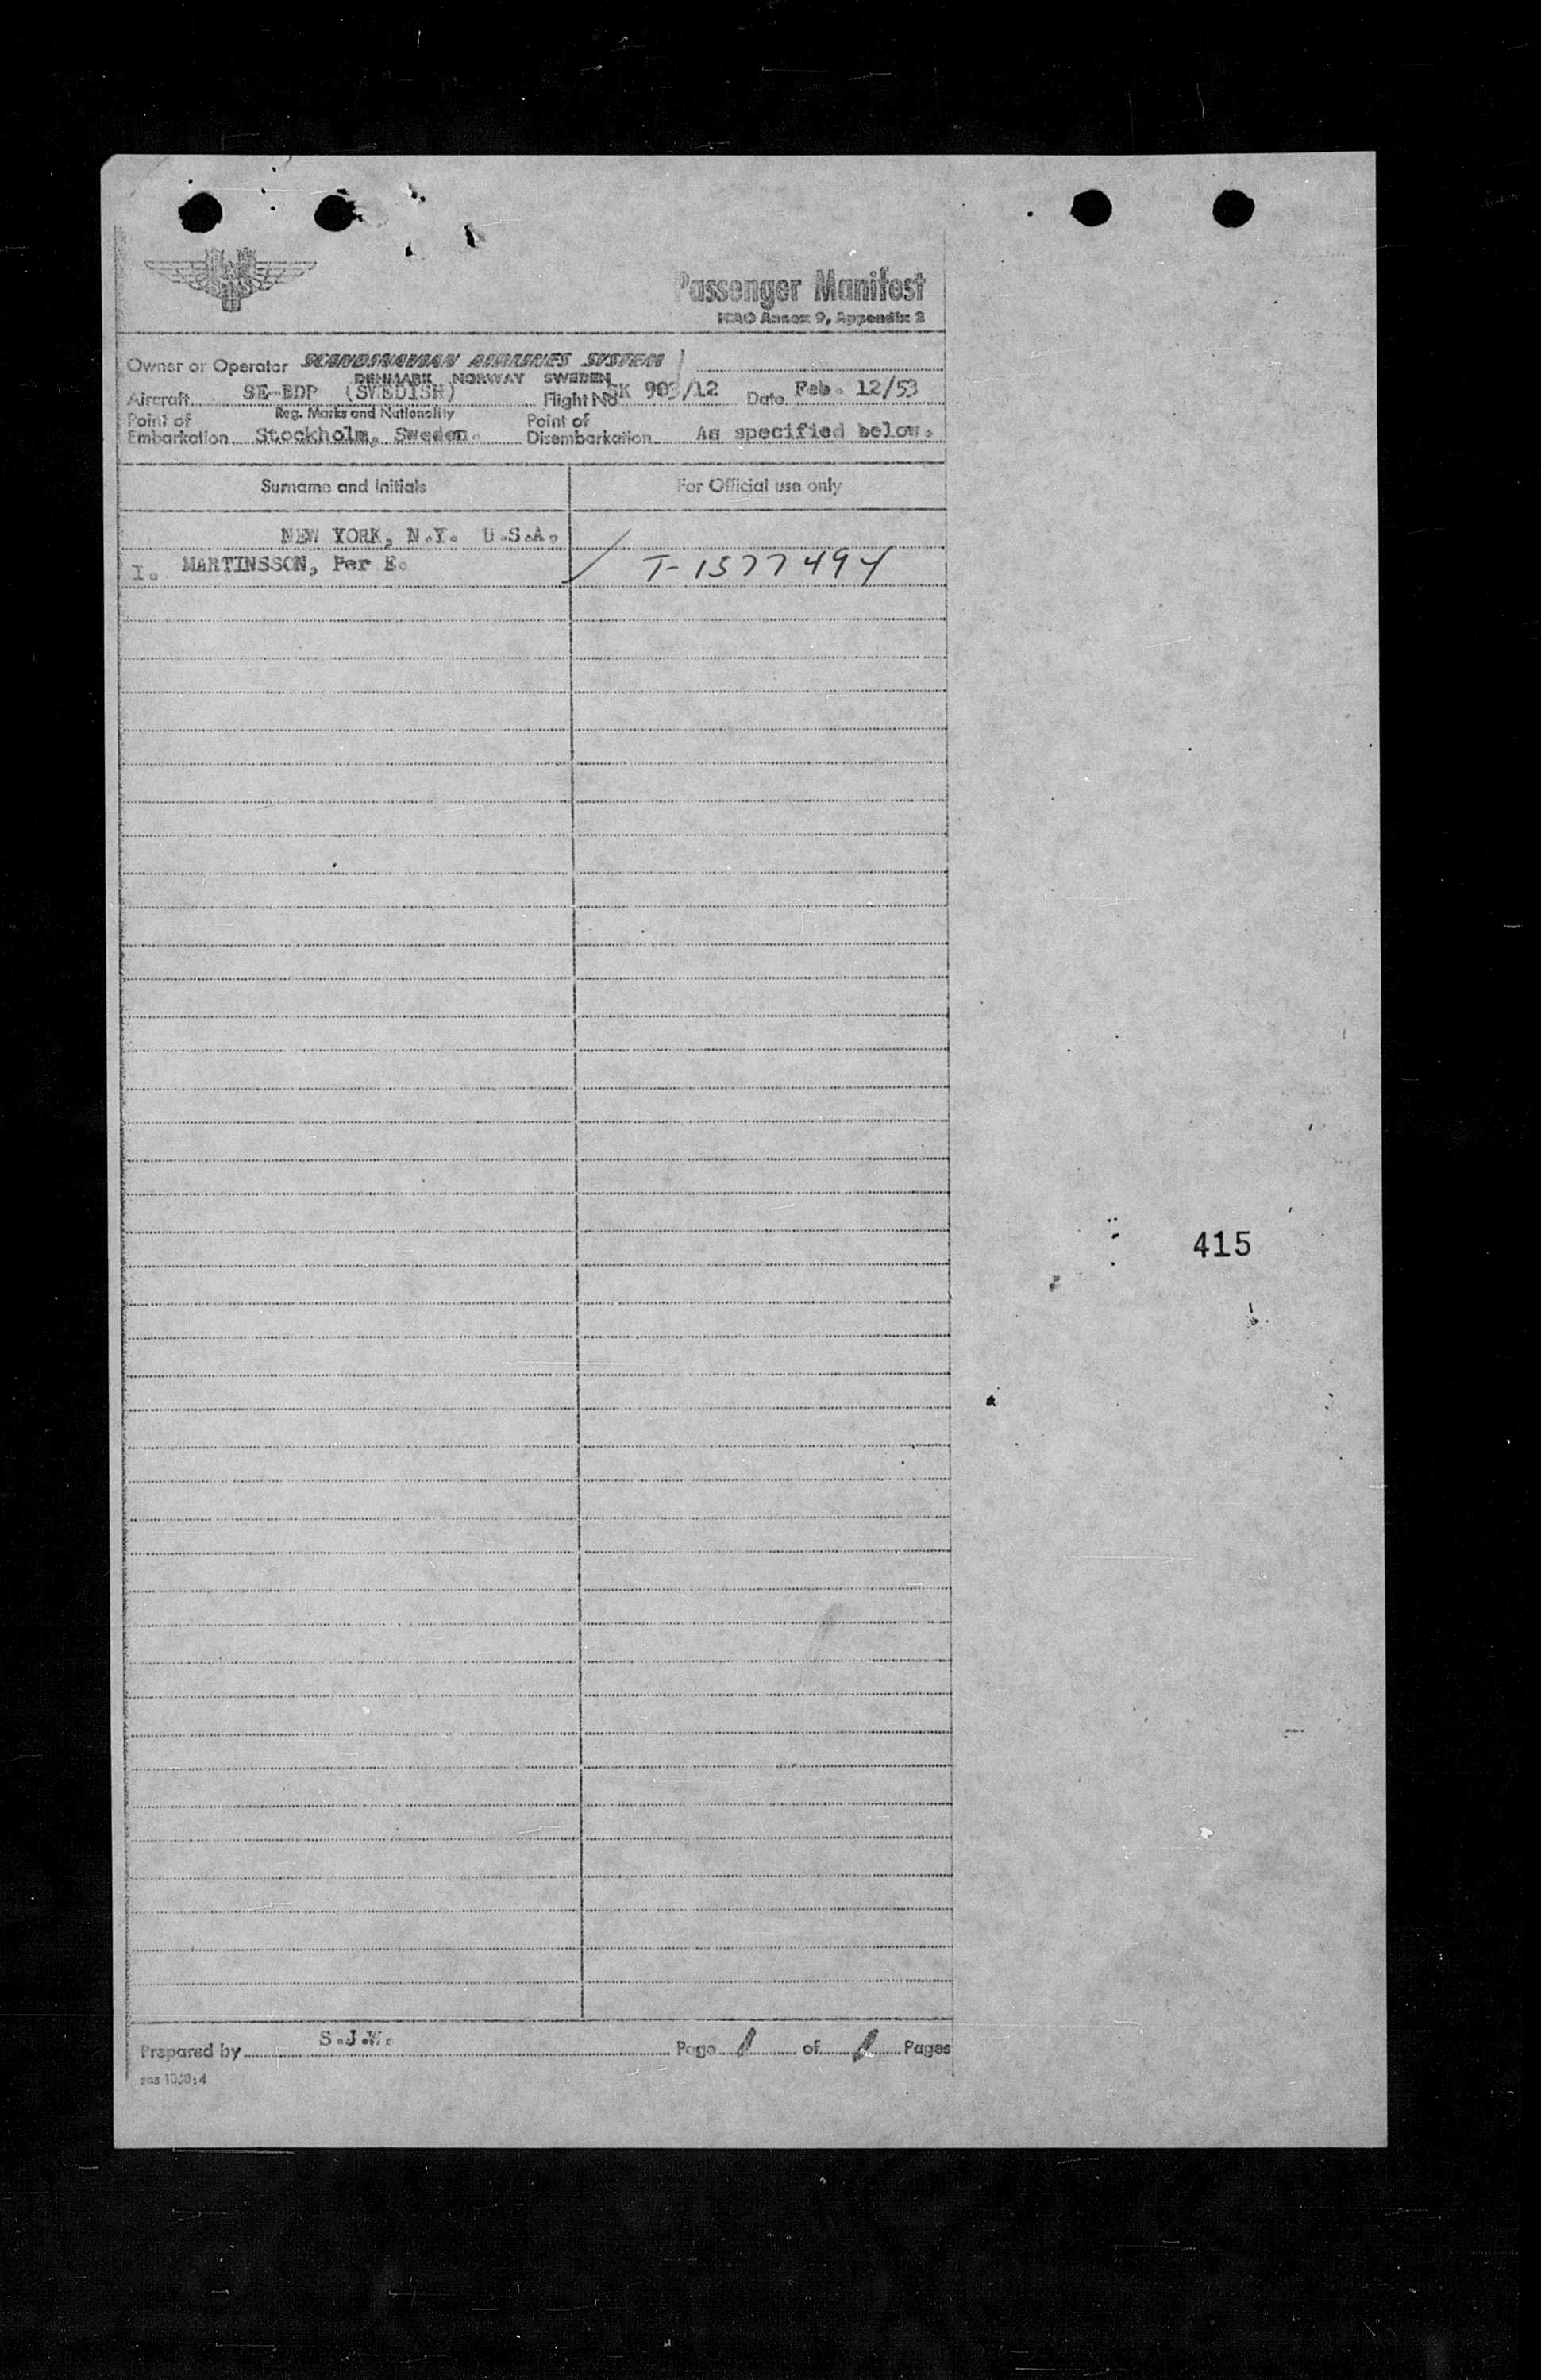 Passenger Manifest
ICAO Annex 9, Appendix 2
Owner or Operator SCANDINAVIAN AIRLINES SYSTEM
DENMARK NORWAY SWEDEN
Aircraft SE-BDP (SWEDISH) Flight No SK 903/12 Date Feb. 12/53
Reg. Marks and Nationality
Point of Embarkation Stockholm, Sweden. Point of Disembarkation As specified below.
Surname and Initials For Official use only
NEW YORK, N.Y. U.S.A.
I. MARTINSSON, Per E. T-1577494
415
Prepared by S.J.W. Page 1 of 1 Pages
sas 1030:4